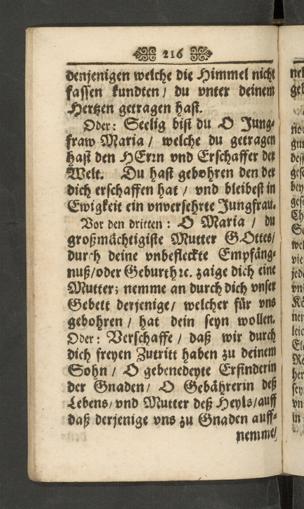 216
denjenigen welche die Himmel nicht
fassen kundten / du vnter deinem
Hertzen getragen hast.
Oder: Seelig bist du O Jung-
fraw Maria / welche du getragen
hast den HErrn vnd Erschaffer der
Welt. Du hast gebohren den der
dich erschaffen hat / vnd bleibest in
Ewigkeit ein vnversehrte Jungfrau.
Vor den dritten: O Maria / du
großmächtigiste Mutter GOttes /
durch deine vnbefleckte Empfäng-
nuß / oder Geburth ꝛc. zaige dich eine
Mutter; nemme an durch dich vnser
Gebett derjenige / welcher für vns
gebohren / hat dein seyn wollen.
Oder: Verschaffe / daß wir durch
dich freyen Zutritt haben zu deinem
Sohn / O gebenedeyte Erfinderin
der Gnaden / O Gebährerin deß
Lebens / vnd Mutter deß Heyls / auff
daß derjenige vns zu Gnaden auff-
nemme /